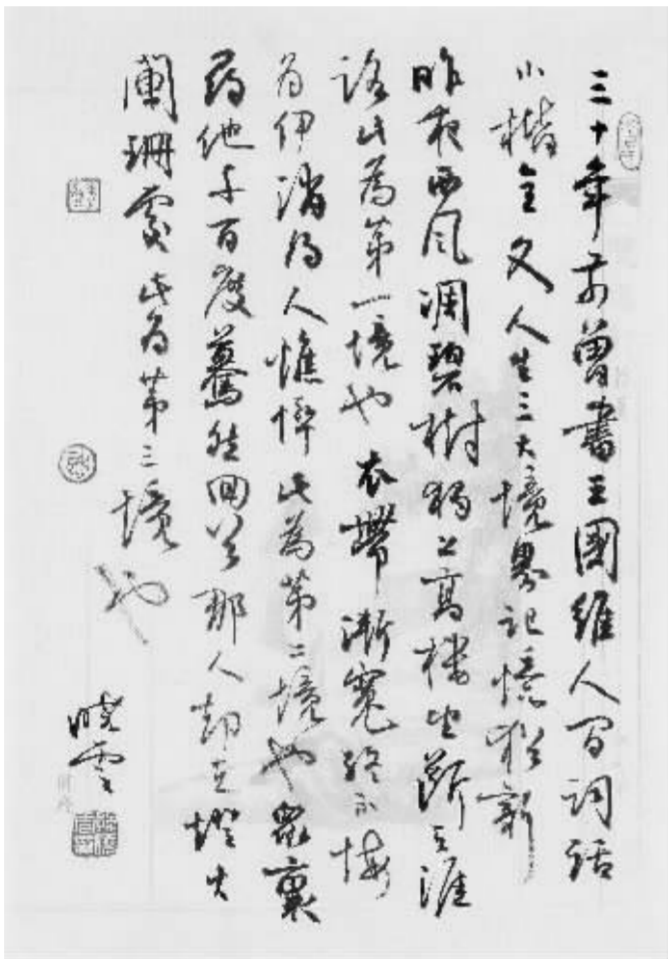 三十年前曾書王國維人间詞話
小楷全文人生三大境界記憶猶新
昨夜西风凋碧樹獨上高樓望斷天涯
路此為第一境也衣帶漸寬終不悔
为伊消得人憔悴此為第二境也眾裏
尋他千百度驀然回首那人却在燈火
闌珊處此为第三境也
曉雲